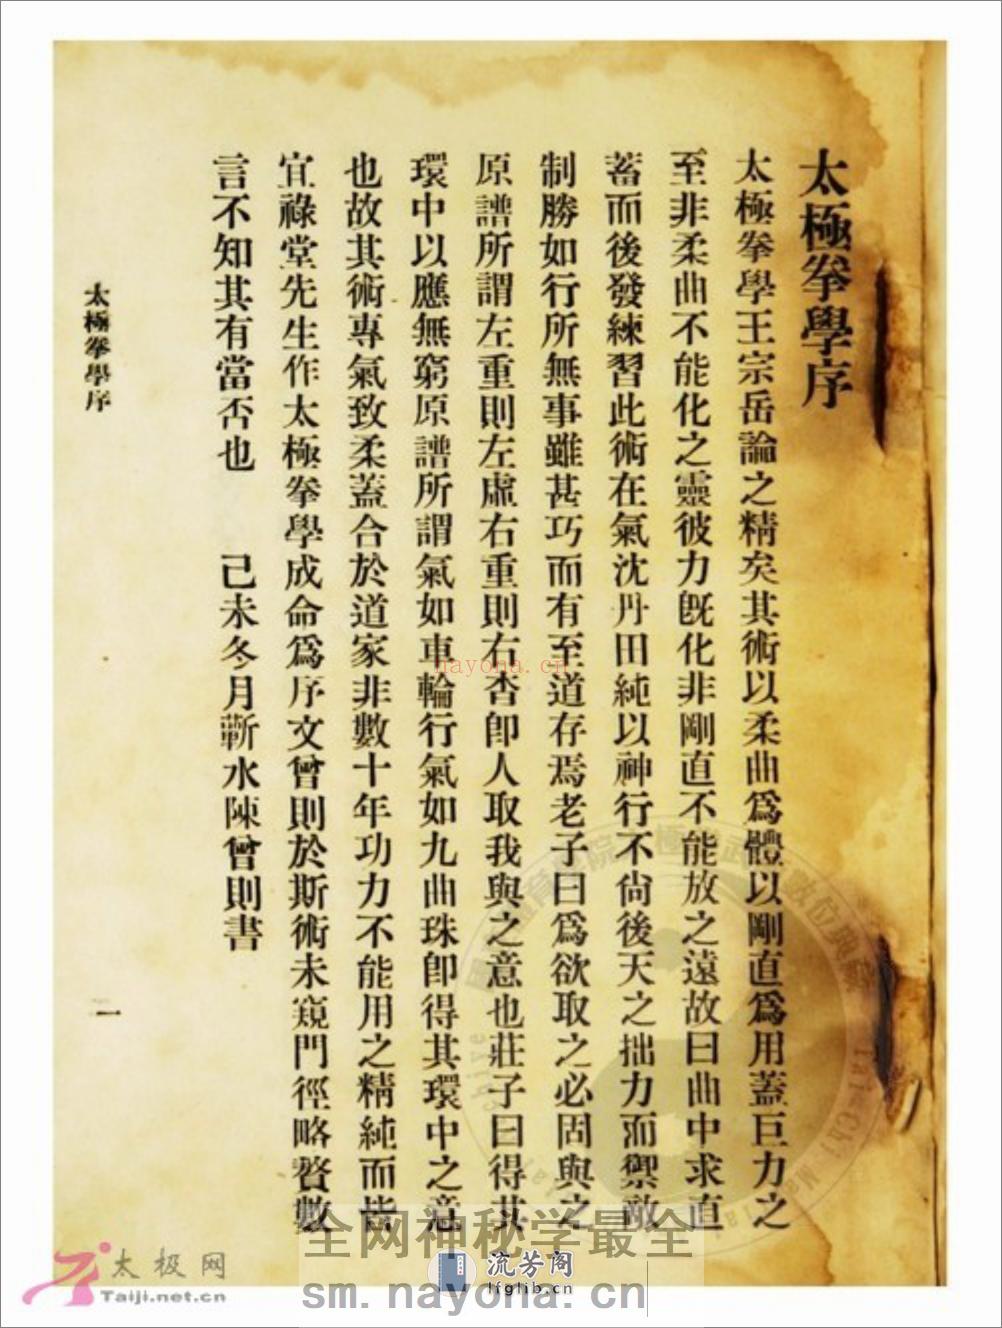 太極拳學序
太極拳學王宗岳論之精矣其術以柔曲爲體以剛直爲用蓋巨力之
至非柔曲不能化之靈彼力旣化非剛直不能放之遠故曰曲中求直
蓄而後發練習此術在氣沈丹田純以神行不尙後天之拙力而禦敵
制勝如行所無事雖甚巧而有至道存焉老子曰爲欲取之必固與之
原譜所謂左重則左虛右重則右杳卽人取我與之意也莊子曰得其
環中以應無窮原譜所謂氣如車輪行氣如九曲珠卽得其環中之意
也故其術專氣致柔蓋合於道家非數十年功力不能用之精純而皆
宜祿堂先生作太極拳學成命爲序文曾則於斯術未窺門徑略贅數
言不知其有當否也 己未冬月蘄水陳曾則書
太極拳學序
一
nayona.cn
全网神秘学最全
sm.nayona.cn
流芳阁
lfglib.cn
太极网
Taiji.net.cn